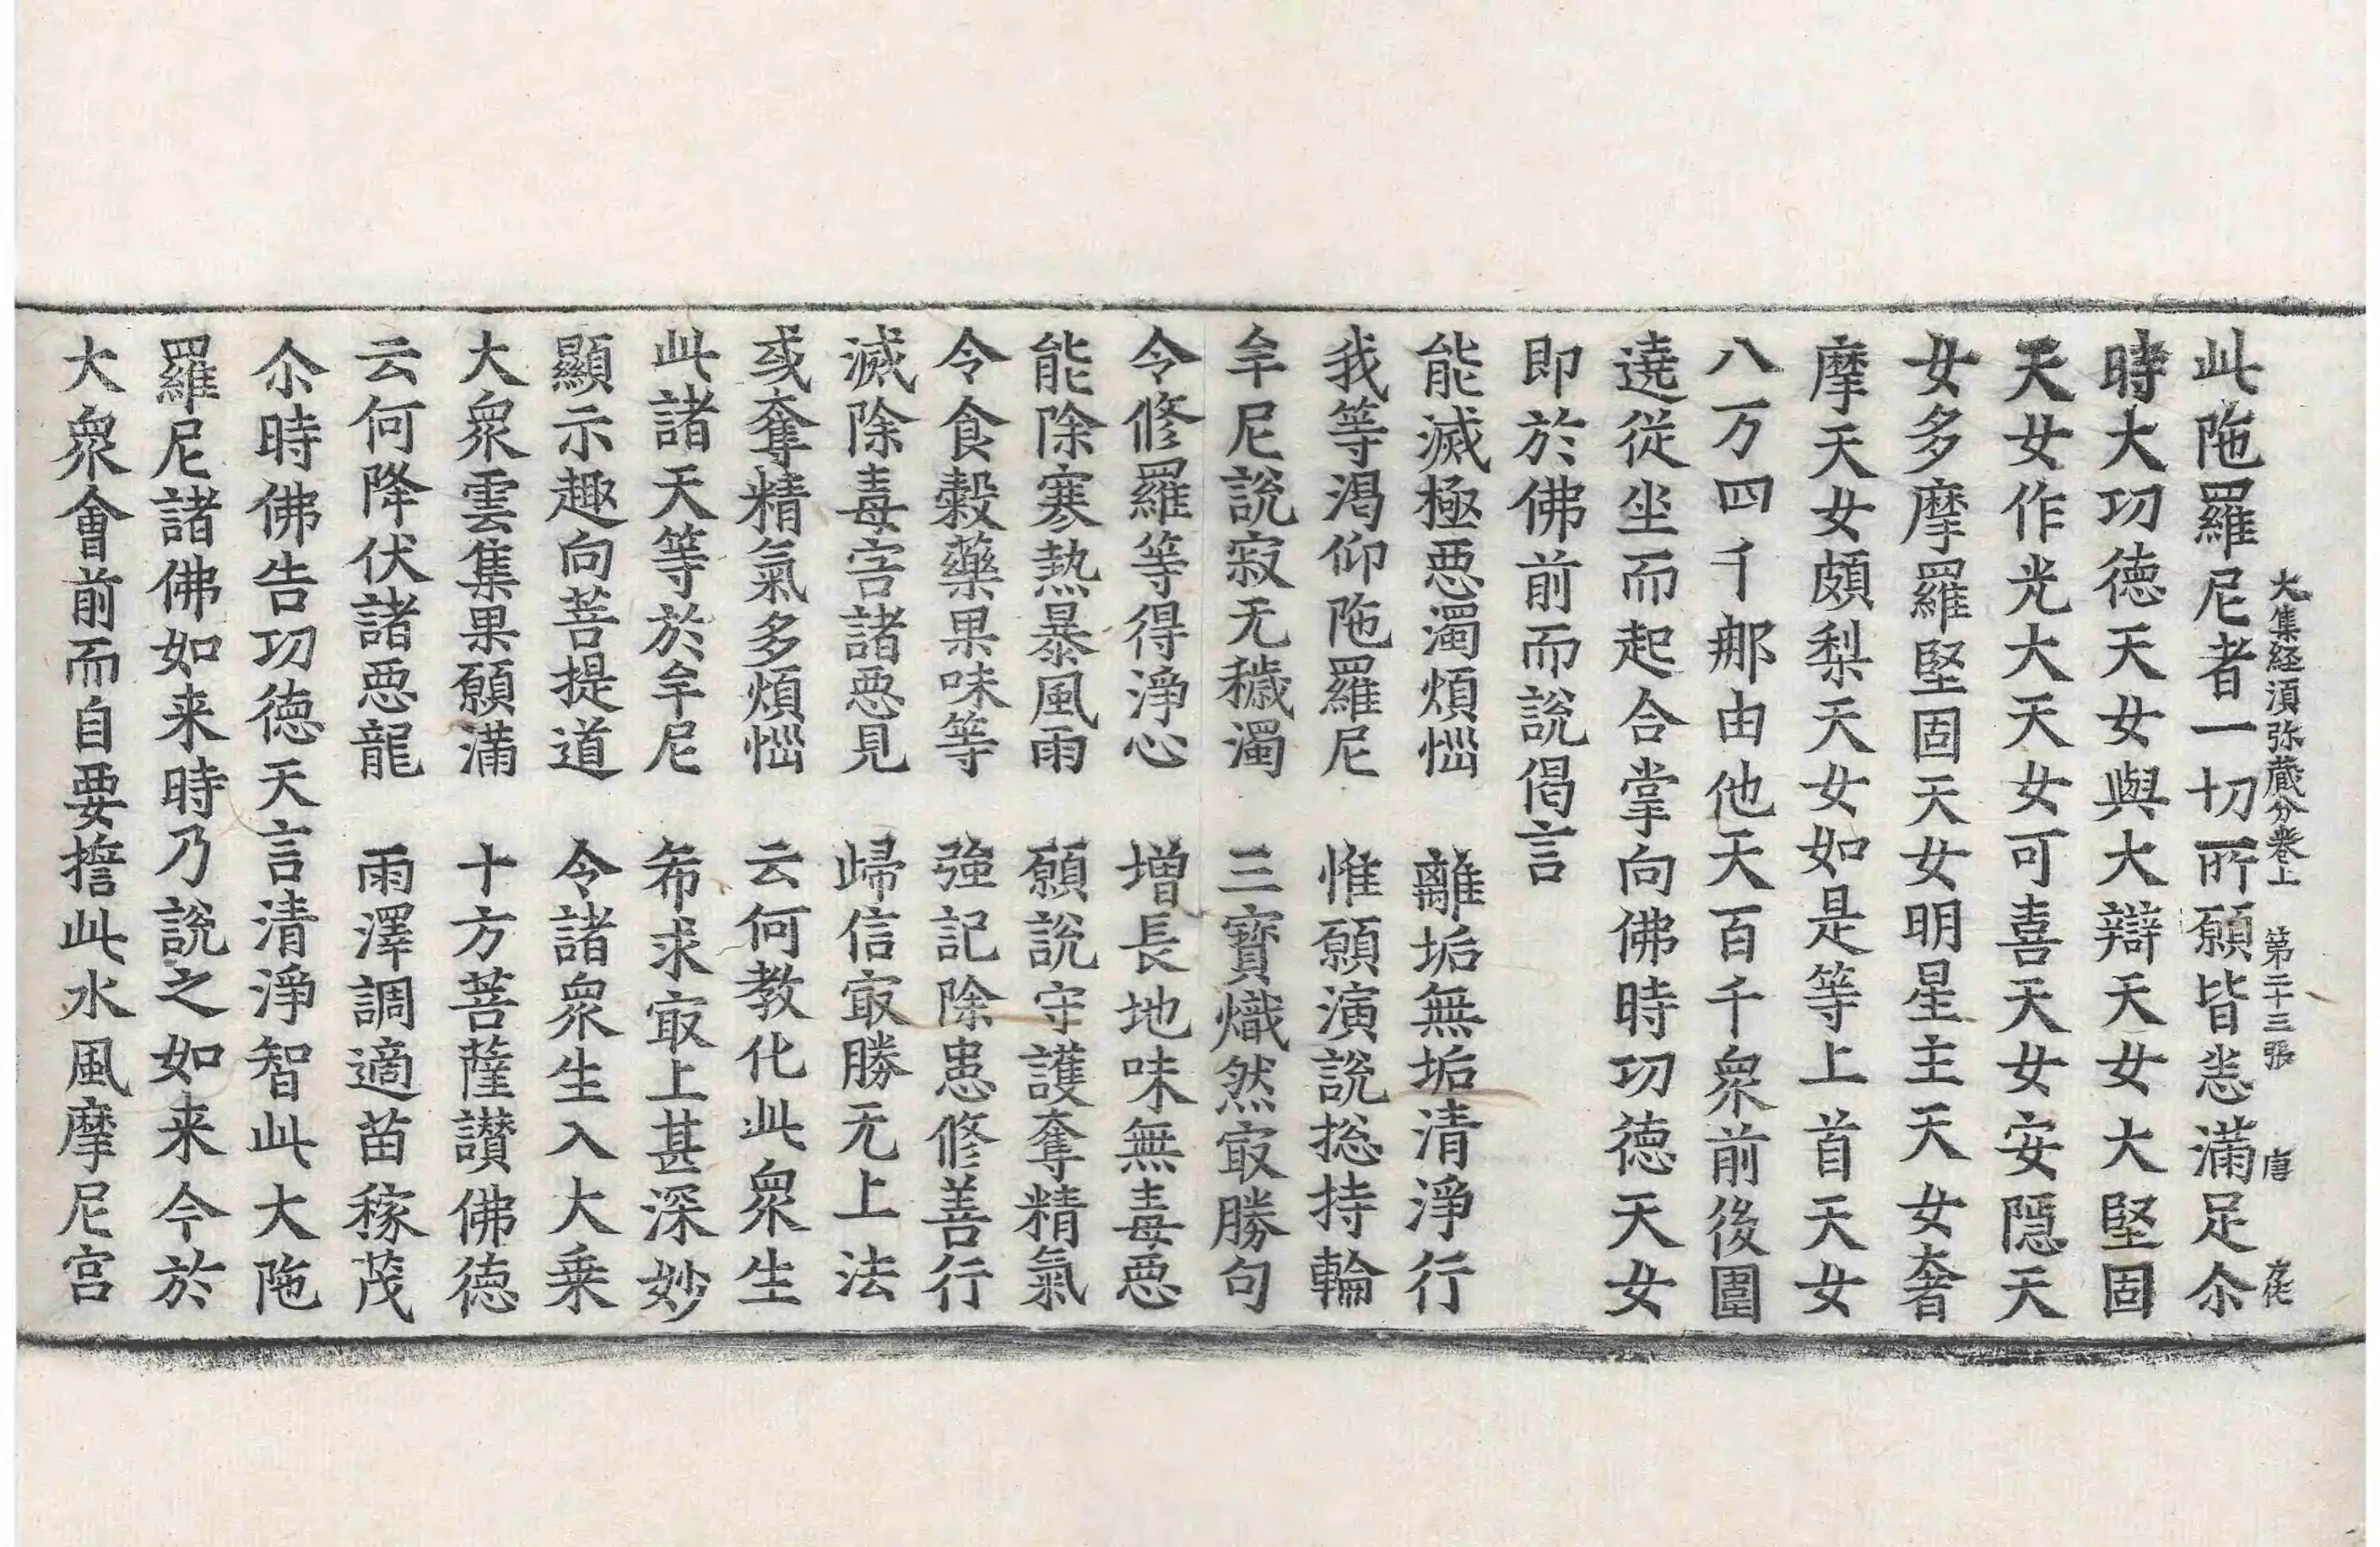 大集経湏弥藏分卷上 第二十三張 唐
此陁羅尼者一切所願皆悉滿足尒
時大功德天女與大辯天女大堅固
天女作光大天女可喜天女安隱天
女多摩羅堅固天女明星主天女奢
摩天女頗梨天女如是等上首天女
八万四千那由他天百千衆前後圍
遶從坐而起合掌向佛時功德天女
即於佛前而說偈言
能滅極惡濁煩惱 離垢無垢清淨行
我等渴仰陁羅尼 惟願演說捴持輪
牟尼說寂无穢濁 三寶熾然㝡勝句
令修羅等得淨心 增長地味無毒惡
能除寒熱暴風雨 願說守護奪精氣
令食穀藥果味等 強記除患修善行
滅除毒害諸惡見 歸信㝡勝无上法
或奪精氣多煩惱 云何教化此衆生
此諸天等於牟尼 希求㝡上甚深妙
顯示趣向菩提道 令諸衆生入大乘
大衆雲集果願滿 十方菩薩讚佛德
云何降伏諸惡龍 雨澤調適苗稼茂
尒時佛告功德天言清淨智此大陁
羅尼諸佛如来時乃說之如来今於
大衆會前而自要誓此水風摩尼宮